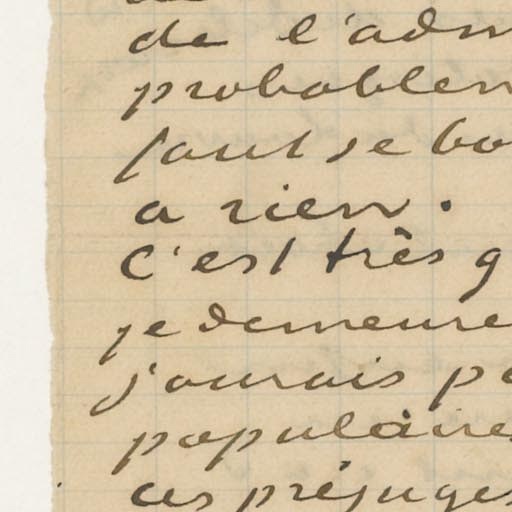 de l'adm
probablem
faut se bo
a rien.
C'est très g
je demeure
j'aurais pa
populaire
ces préjuges